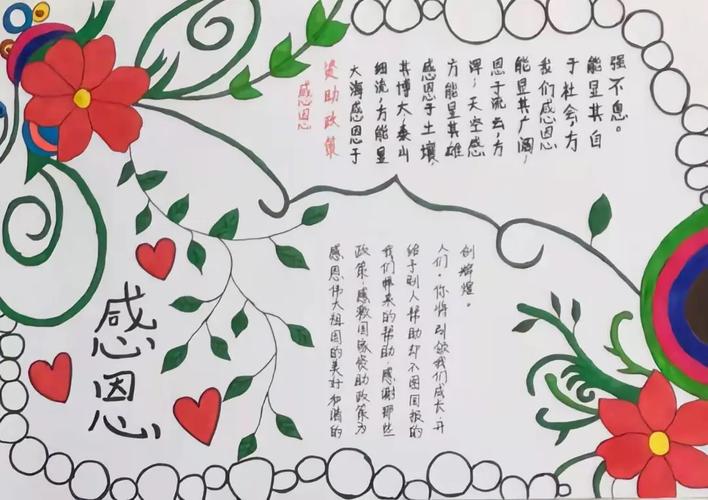 感恩
资助政策
大海感恩于
细流,方能显
其博大,泰山
感恩于土壤
方能显其雄
浑,天空感
恩于流云,方
能显其广阔,
我们感恩
于社会方
能显其自
强不息。
感恩
感恩伟大祖国的美好和谐的
政策,感激国家资助政策为
我们带来的帮助,感谢那些
给予别人帮助却不图回报的
人们。你将引领我们成长开
创辉煌。